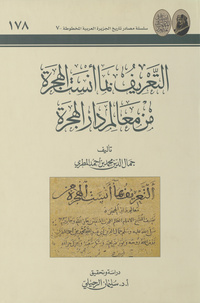 سلسلة مصادر تاريخ الجزيرة العربية المخطوطة - ٧
١٧٨
التعريف بما أنست الهجرة
من معالم دار الهجرة
تأليف
جمال الدين محمد بن أحمد المطري
التعريف بما أنست الهجرة
دراسة وتحقيق
أ.د. سليمان الرحيلي